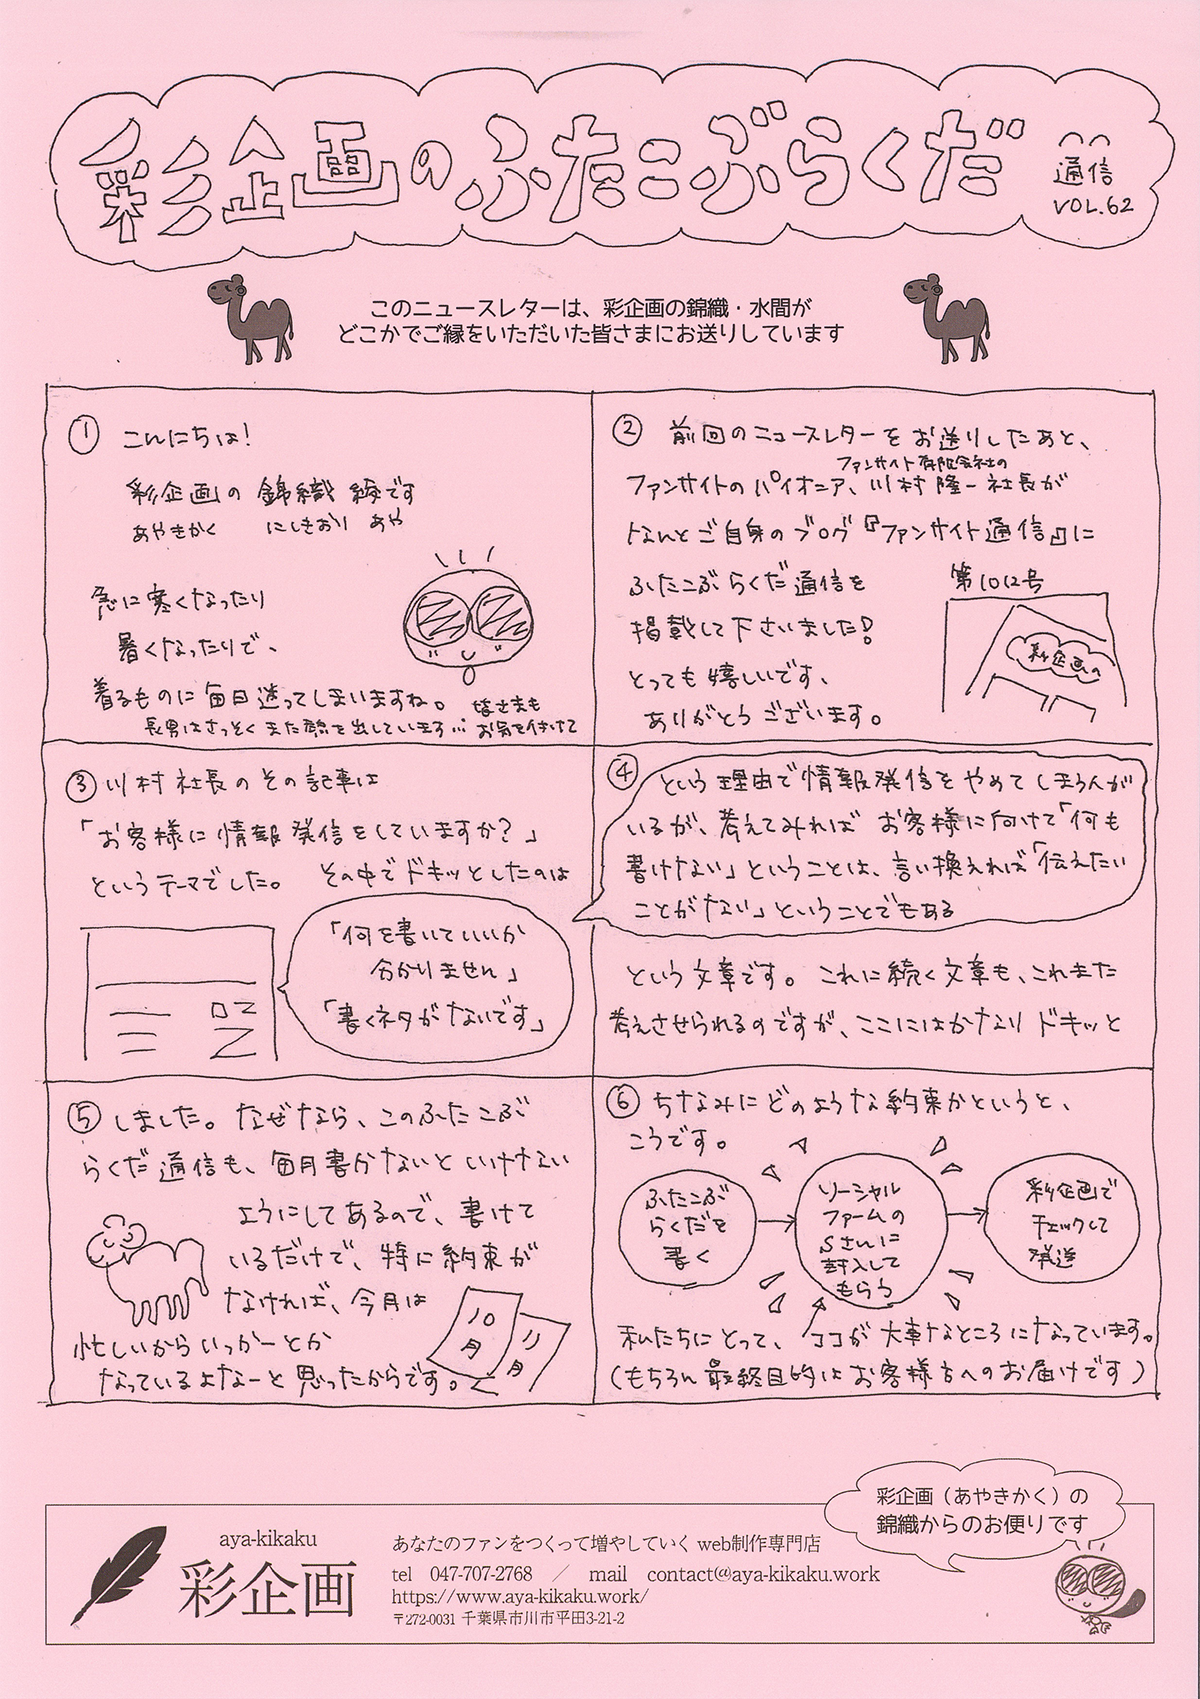 彩企画のふたこぶらくだ
通信
VOL.62
このニュースレターは、彩企画の錦織・水間が
どこかでご縁をいただいた皆さまにお送りしています
① こんにちは!
彩企画の 錦織 綾です
あやきかく にしきおり あや
急に寒くなったり
暑くなったりで、
着るものに毎日迷ってしまいますね。
長男はさっそくまた顔を出しています…
皆さまも
お気を付けて
② 前回のニュースレターをお送りしたあと、
ファンサイト有限会社の
ファンサイトのパイオニア、川村隆一社長が
なんとご自身のブログ『ファンサイト通信』に
ふたこぶらくだ通信を
掲載して下さいました!
とっても嬉しいです、
ありがとうございます。
第1012号
彩企画の
③ 川村社長のその記事は
「お客様に情報発信をしていますか?」
というテーマでした。 その中でドキッとしたのは
「何を書いていいか
分かりません」
「書くネタがないです」
④ という理由で情報発信をやめてしまう人が
いるが、考えてみれば お客様に向けて「何も
書けない」ということは、言い換えれば「伝えたい
ことがない」ということでもある
という文章です。これに続く文章も、これまた
考えさせられるのですが、ここにはかなりドキッと
⑤ しました。なぜなら、このふたこぶ
らくだ通信も、毎月書かないといけない
ようにしてあるので、書けて
いるだけで、特に約束が
なければ、今月は
忙しいからいっかーとか
なっているよなーと思ったからです。
10月
11月
⑥ ちなみにどのような約束かというと、
こうです。
ふたこぶ
らくだを
書く
ソーシャル
ファームの
Sさんに
封入して
もらう
彩企画で
チェックして
発送
私たちにとって、ココが大事なところになっています。
(もちろん最終目的はお客様方へのお届けです)
彩企画(あやきかく)の
錦織からのお便りです
aya-kikaku
彩企画
あなたのファンをつくって増やしていく web制作専門店
tel 047-707-2768 / mail contact@aya-kikaku.work
https://www.aya-kikaku.work/
〒272-0031 千葉県市川市平田3-21-2